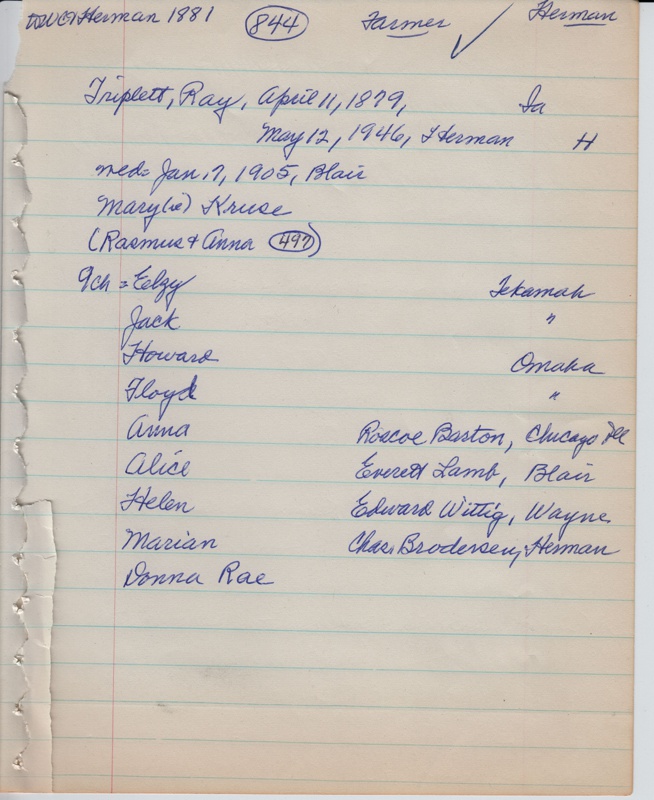 to WC Herman 1881 844 Farmer ✓ Herman
Triplett, Ray, April 11, 1879, Ia
May 12, 1946, Herman H
med= Jan. 7, 1905, Blair
Mary(ie) Kruse
(Rasmus + Anna 497)
9ch = Eelzy Tekamah
Jack "
Howard Omaha
Floyd "
Anna Roscoe Barton, Chicago Ill
Alice Everett Lamb, Blair
Helen Edward Wittig, Wayne
Marian Chas. Brodersen, Herman
Donna Rae